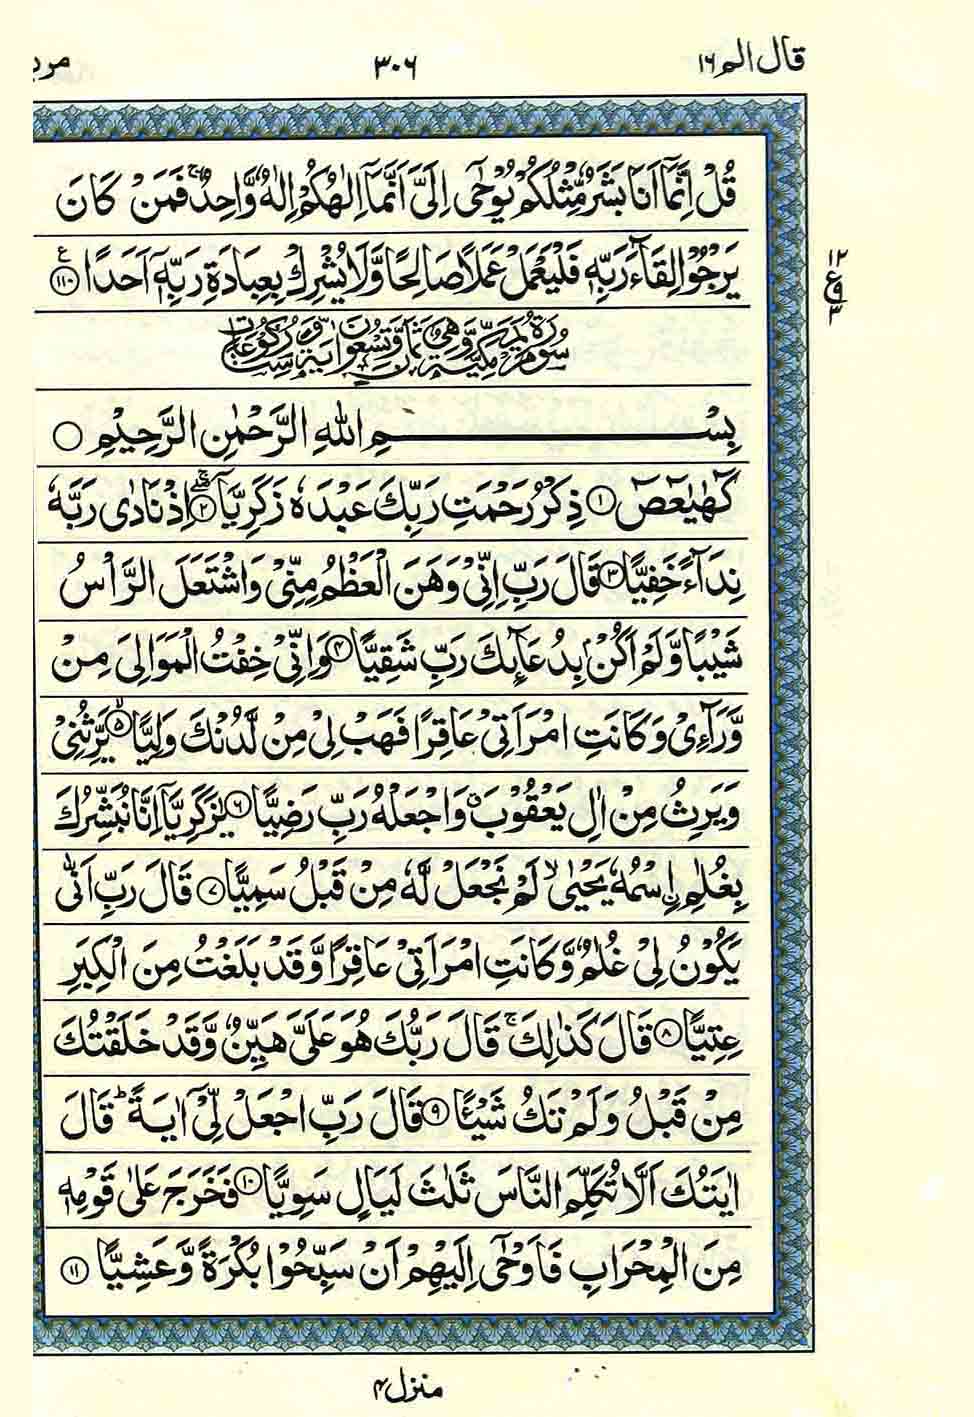 قال الم ١٦
٣٠٦
قُلْ اِنَّمَاۤ اَنَا بَشَرٌ مِّثْلُكُمْ يُوْحٰۤى اِلَىَّ اَنَّمَاۤ اِلٰهُكُمْ اِلٰهٌ وَّاحِدٌ ۚ فَمَنْ كَانَ
يَرْجُوْا لِقَآءَ رَبِّهٖ فَلْيَعْمَلْ عَمَلًا صَالِحًا وَّلَا يُشْرِكْ بِعِبَادَةِ رَبِّهٖۤ اَحَدًا ﴿١١٠﴾ ع
١٢
ع
٣
سُوْرَةُ مَرْيَمَ مَكِّيَّةٌ وَّهِىَ ثَمَانٌ وَّتِسْعُوْنَ اٰيَةً وَّسِتُّ رُكُوْعَاتٍ
بِسْمِ اللهِ الرَّحْمٰنِ الرَّحِيْمِ ○
كٓهٰيٰعٓصٓ ﴿١﴾ ذِكْرُ رَحْمَتِ رَبِّكَ عَبْدَهٗ زَكَرِيَّا ﴿٢﴾ اِذْ نَادٰى رَبَّهٗ
نِدَآءً خَفِيًّا ﴿٣﴾ قَالَ رَبِّ اِنِّىْ وَهَنَ الْعَظْمُ مِنِّىْ وَاشْتَعَلَ الرَّاْسُ
شَيْبًا وَّلَمْ اَكُنْۢ بِدُعَآئِكَ رَبِّ شَقِيًّا ﴿٤﴾ وَاِنِّىْ خِفْتُ الْمَوَالِىَ مِنْ
وَّرَآءِىْ وَكَانَتِ امْرَاَتِىْ عَاقِرًا فَهَبْ لِىْ مِنْ لَّدُنْكَ وَلِيًّا ﴿٥﴾ يَّرِثُنِىْ
وَيَرِثُ مِنْ اٰلِ يَعْقُوْبَ ۖ وَاجْعَلْهُ رَبِّ رَضِيًّا ﴿٦﴾ يٰزَكَرِيَّاۤ اِنَّا نُبَشِّرُكَ
بِغُلٰمِ ۨاسْمُهٗ يَحْيٰى ۙ لَمْ نَجْعَلْ لَّهٗ مِنْ قَبْلُ سَمِيًّا ﴿٧﴾ قَالَ رَبِّ اَنّٰى
يَكُوْنُ لِىْ غُلٰمٌ وَّكَانَتِ امْرَاَتِىْ عَاقِرًا وَّقَدْ بَلَغْتُ مِنَ الْكِبَرِ
عِتِيًّا ﴿٨﴾ قَالَ كَذٰلِكَ ۚ قَالَ رَبُّكَ هُوَ عَلَىَّ هَيِّنٌ وَّقَدْ خَلَقْتُكَ
مِنْ قَبْلُ وَلَمْ تَكُ شَيْـًٔا ﴿٩﴾ قَالَ رَبِّ اجْعَلْ لِّىْۤ اٰيَةً ؕ قَالَ
اٰيَتُكَ اَلَّا تُكَلِّمَ النَّاسَ ثَلٰثَ لَيَالٍ سَوِيًّا ﴿١٠﴾ فَخَرَجَ عَلٰى قَوْمِهٖ
مِنَ الْمِحْرَابِ فَاَوْحٰۤى اِلَيْهِمْ اَنْ سَبِّحُوْا بُكْرَةً وَّعَشِيًّا ﴿١١﴾
منزل ٤